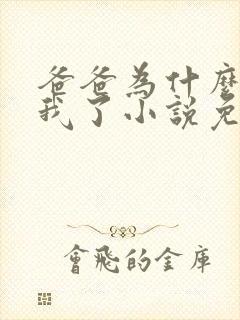 爸爸為什麼
我了小說免
會飛的金庫